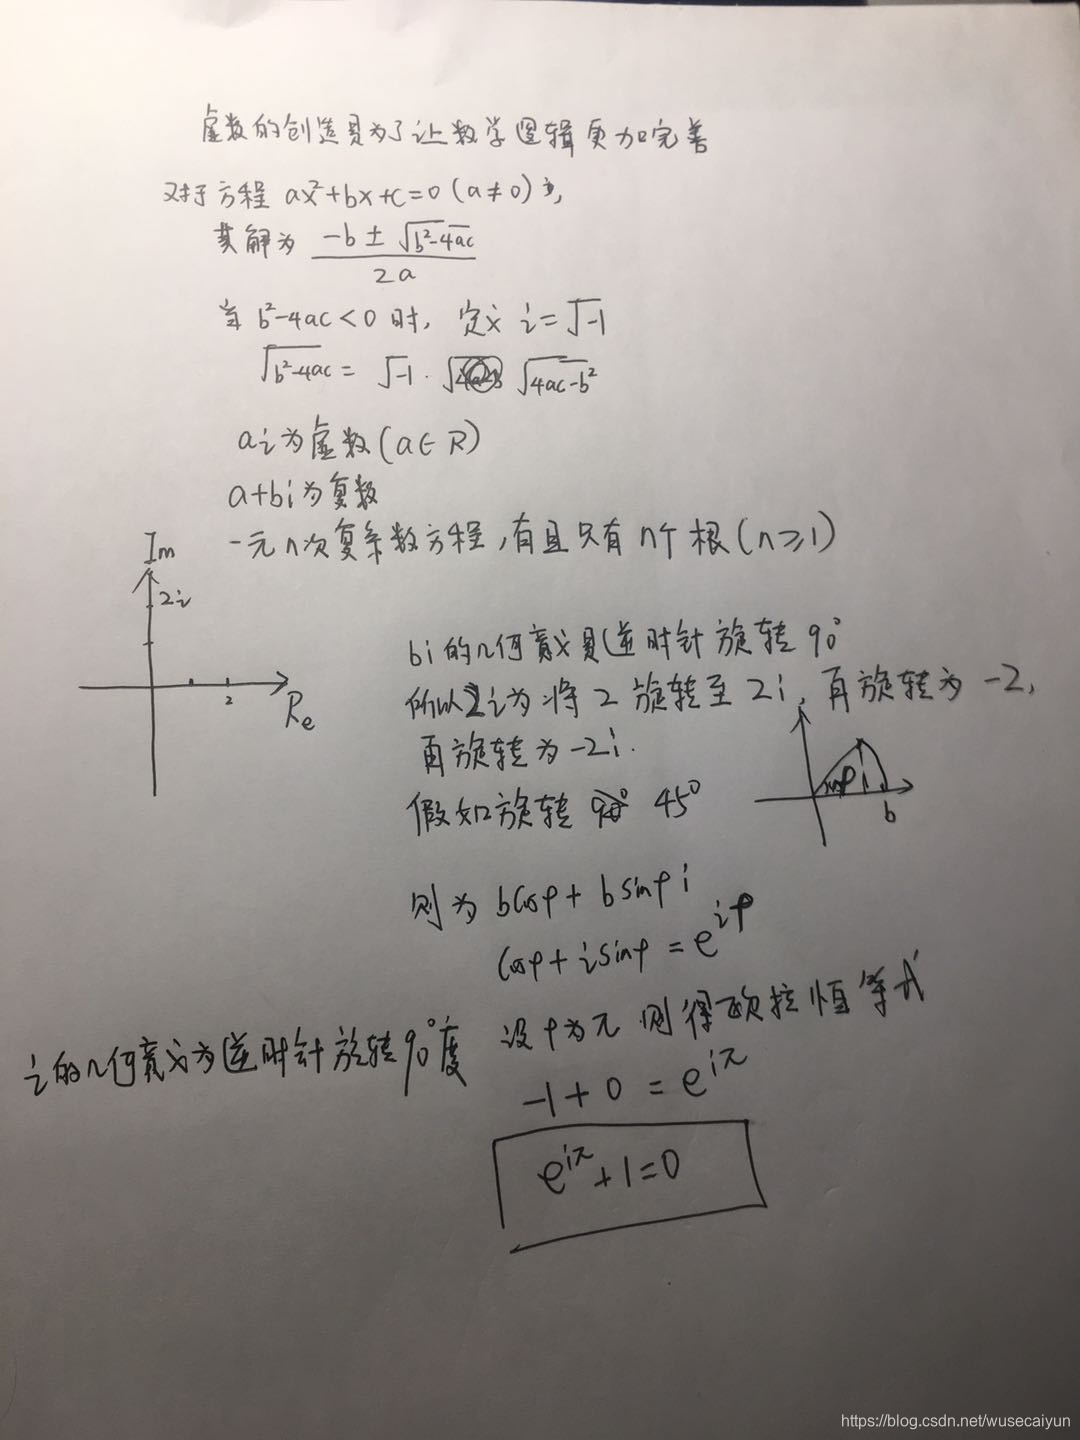 虚数的创造是为了让数学逻辑更加完善
对于方程 ax²+bx+c=0 (a≠0)
其解为 (-b ± √(b²-4ac)) / 2a
当 b²-4ac<0 时, 定义 i=√-1
√(b²-4ac) = √-1 · √(4ac-b²)
ai为虚数(a∈R)
a+bi为复数
一元n次复系数方程,有且只有n个根(n≥1)
Im
2i
2
Re
bi的几何意义是逆时针旋转90°
所以2i为将2旋转至2i,再旋转为-2,
再旋转为-2i.
假如旋转 45°
φ
i
b
则为 bcosφ+bsinφi
cosφ+isinφ=e^{iφ}
设φ为π则得欧拉恒等式
i的几何意义为逆时针旋转90°度
-1+0=e^{iπ}
e^{iπ}+1=0
https://blog.csdn.net/wusecaiyun